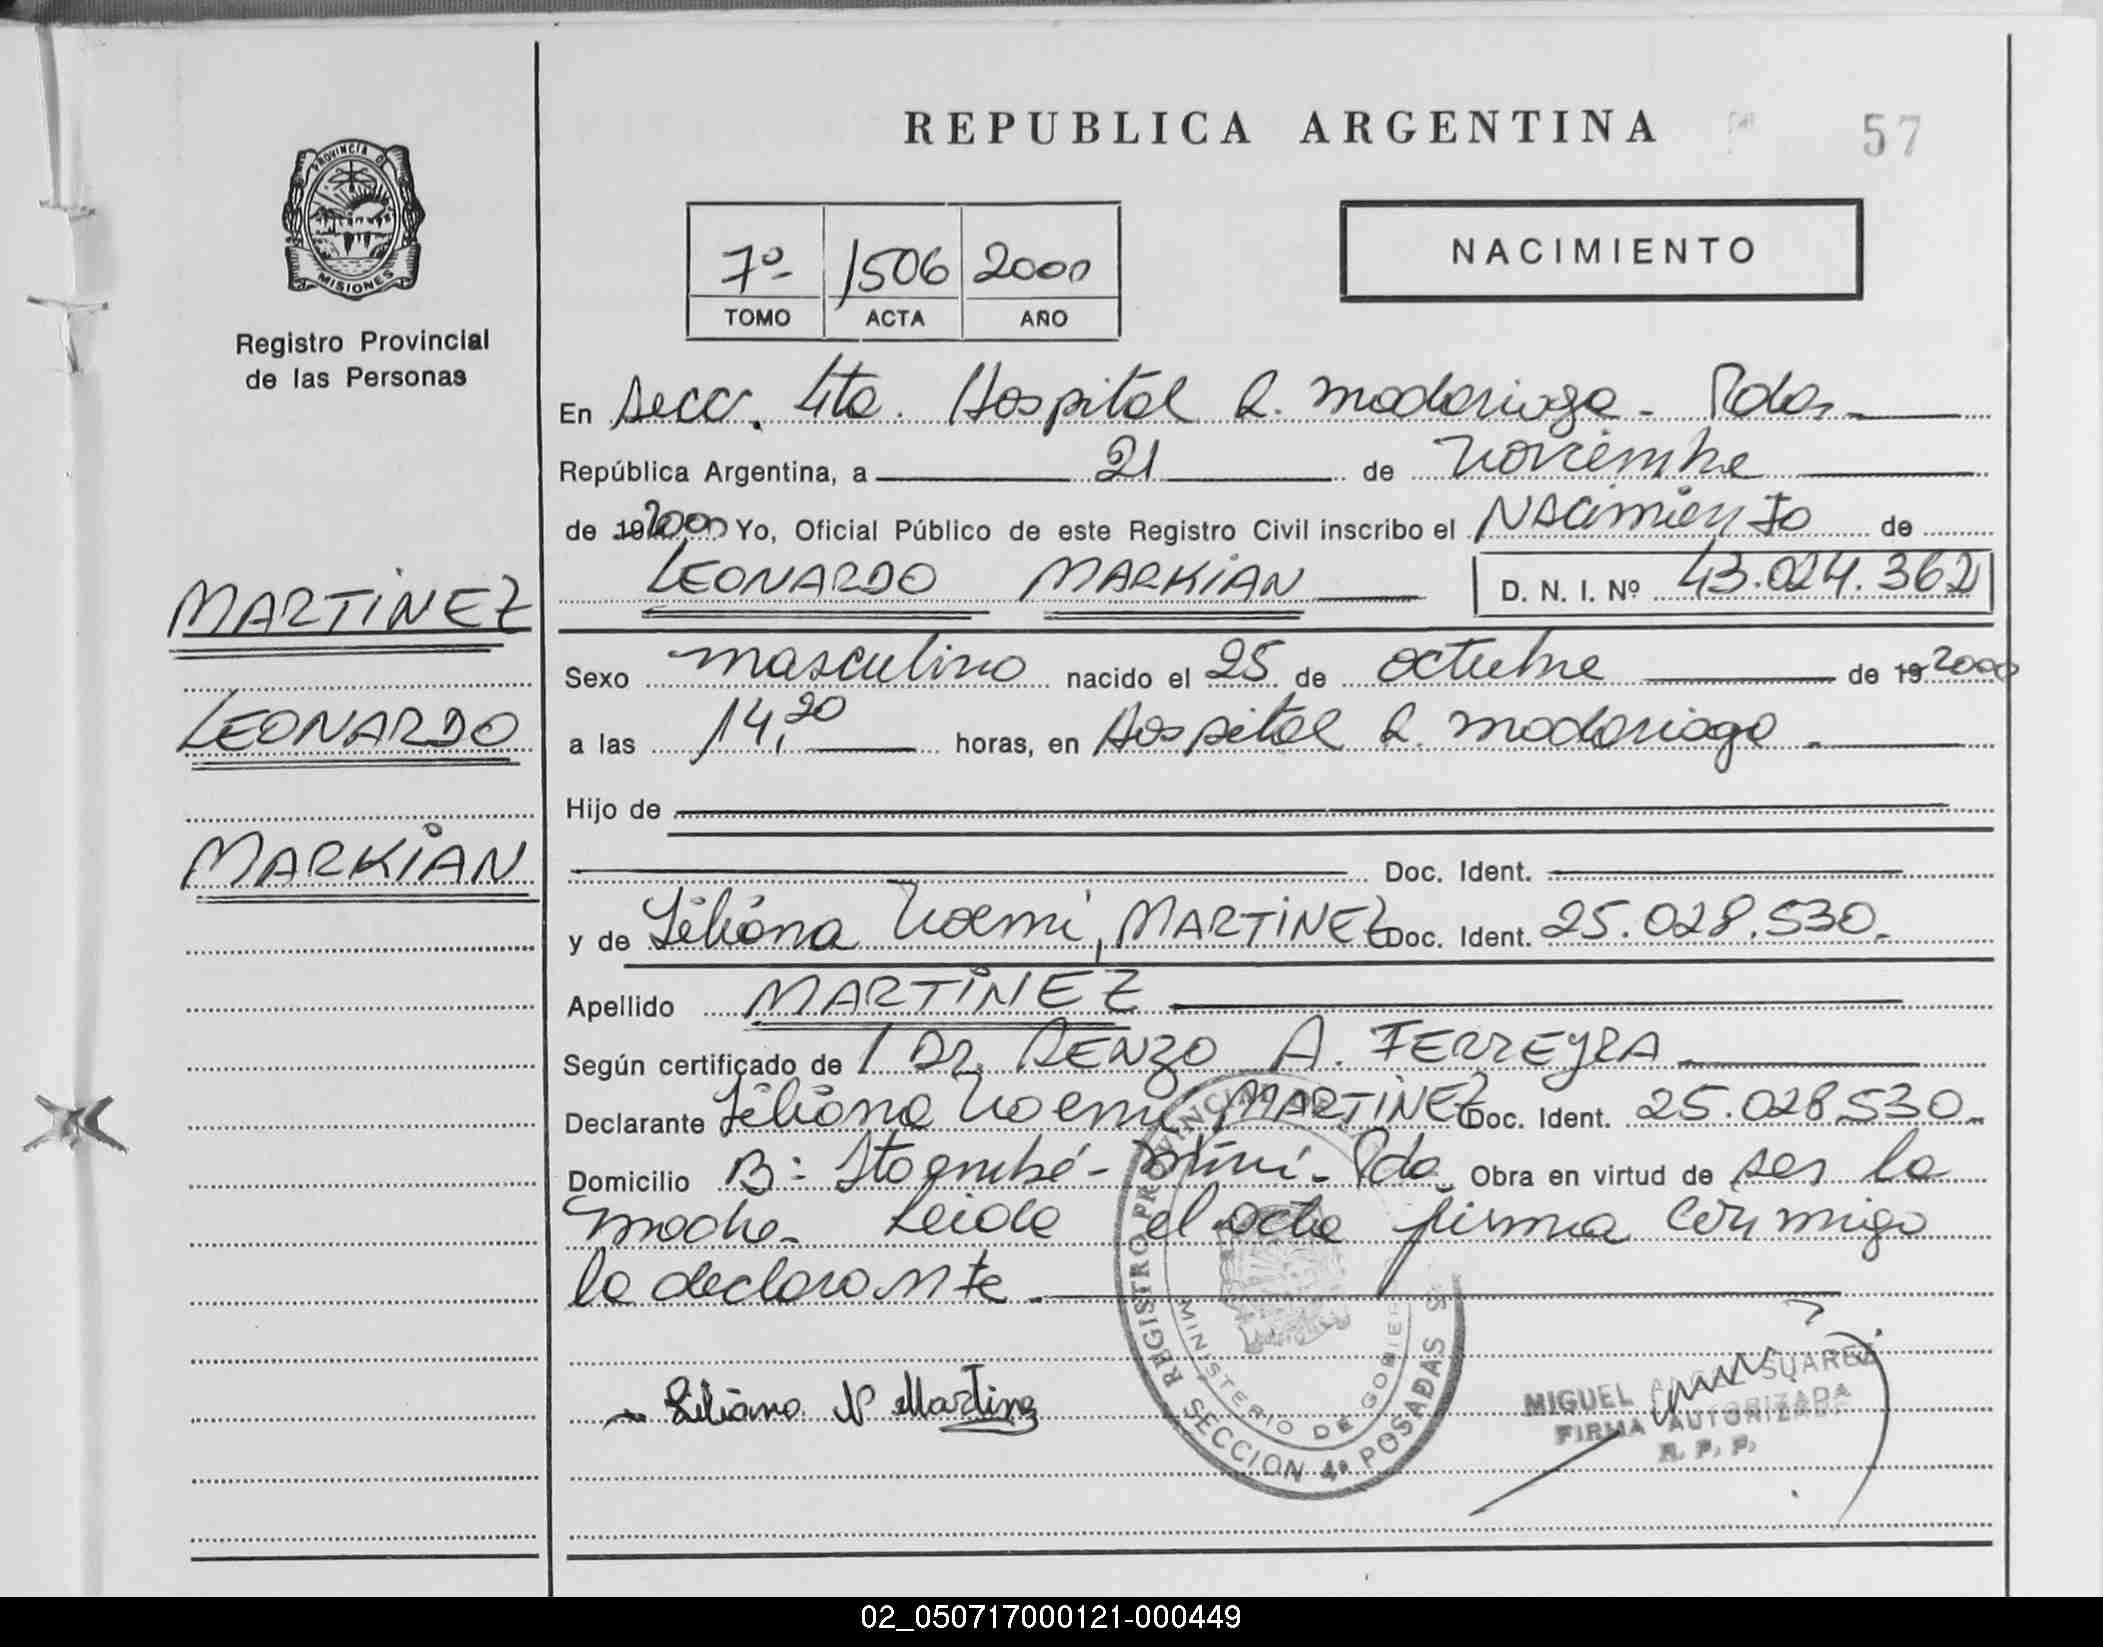 REPUBLICA ARGENTINA
57
PROVINCIA D MISIONES
Registro Provincial
de las Personas
7º 1506 2000
TOMO ACTA AÑO
NACIMIENTO
En Secc. 4ta. Hospital R. Madariaga - Pdas.
República Argentina, a 21 de Noviembre
de 192000 Yo, Oficial Público de este Registro Civil inscribo el NACIMIENTO de
LEONARDO MARKIAN D. N. I. Nº 43.024.362
MARTINEZ
LEONARDO
MARKIAN
Sexo masculino nacido el 25 de octubre de 19 2000
a las 14,20 horas, en Hospital R. Madariaga.
Hijo de
Doc. Ident.
y de Liliana Noemi, MARTINEZ Doc. Ident. 25.028.530.
Apellido MARTINEZ
Según certificado de Dr. RENZO A. FERREYRA
Declarante Liliana Noemi, MARTINEZ Doc. Ident. 25.028.530.
Domicilio B: Itaembé-Miní-Pda. Obra en virtud de ser la
madre. Leida el acta firma conmigo
la declarante.
Liliana N Martinez
REGISTRO PROVINCIAL
MINISTERIO DE GOBIER
SECCION 4ª POSADAS
MIGUEL SUAREZ
FIRMA AUTORIZADA
R. P. P.
02_050717000121-000449